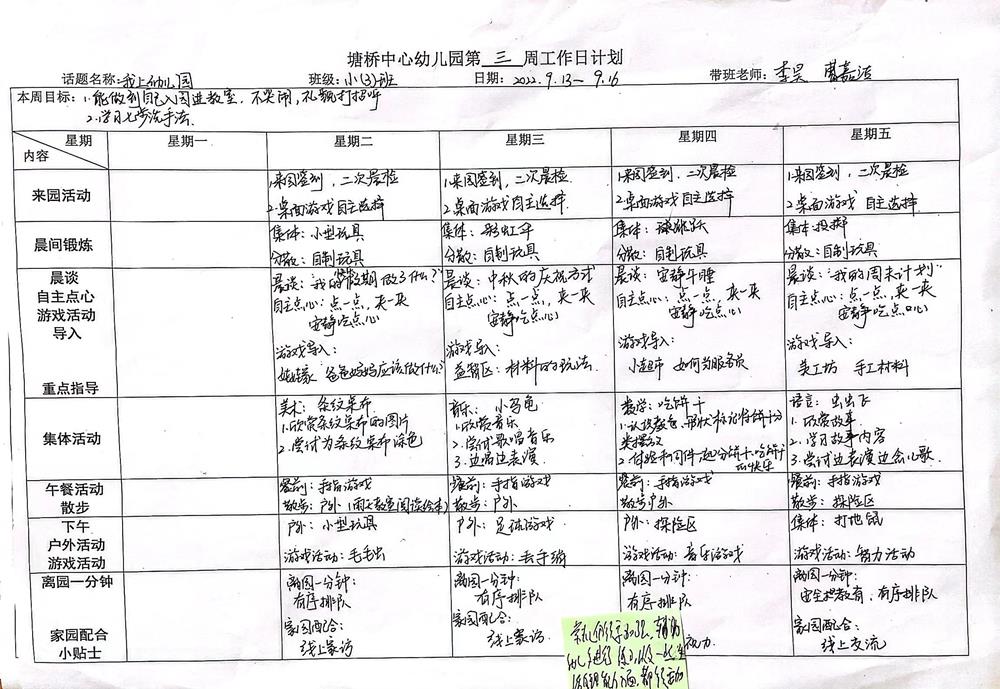 塘桥中心幼儿园第 三 周工作日计划
话题名称:我上幼儿园 班级:小(3)班 日期:2022.9.13~9.16 带班老师:
本周目标:1.能做到自己入园进教室,不哭闹,礼貌打招呼
2.学习七步洗手法.
星期 内容 星期一 星期二 星期三 星期四 星期五
来园活动
1.来园签到,二次晨检
2.桌面游戏自主选择
1.来园签到,二次晨检
2.桌面游戏自主选择
1.来园签到,二次晨检
2.桌面游戏自主选择
1.来园签到,二次晨检
2.桌面游戏 自主选择
晨间锻炼
集体:小型玩具
分散:自制玩具
集体:彩虹伞
分散:自制玩具
集体:
分散:自制玩具
集体:投掷
分散:自制玩具
晨谈
自主点心
游戏活动
导入
重点指导
晨谈:"我的假期做了什么?"
自主点心:点一点,夹一夹
安静吃点心
游戏导入:
娃娃家 爸爸妈妈应该做什么?
晨谈:中秋的庆祝方式
自主点心:点一点,夹一夹
安静吃点心
游戏导入:
益智区:材料的玩法.
晨谈:安静午睡
自主点心:点一点,夹一夹
安静吃点心
游戏导入:
小超市 如何当服务员
晨谈:"我的周末计划"
自主点心:点一点,夹一夹
安静吃点心
游戏导入:
美工坊 手工材料
集体活动
美术:条纹桌布
1.欣赏条纹桌布的图片
2.尝试为条纹桌布涂色
音乐:小乌龟
1.欣赏音乐
2.尝试歌唱音乐
3.边唱边表演
数学:吃饼干
语言:虫虫飞
1.欣赏故事
2.学习故事内容
3.尝试边表演边念儿歌
午餐活动
散步
餐前:手指游戏
散步:户外(雨天教室阅读绘本)
餐前:手指游戏
散步:户外
餐前:手指游戏
散步:户外
餐前:手指游戏
散步:探险区
下午
户外活动
游戏活动
户外:小型玩具
游戏活动:毛毛虫
户外:足球游戏
游戏活动:丢手绢
户外:探险区
游戏活动:音乐游戏
集体:打地鼠
游戏活动:智力活动
离园一分钟
家园配合
小贴士
离园一分钟:
有序排队
家园配合:
线上家访
离园一分钟:
有序排队
家园配合:
线上家访
离园一分钟:
有序排队
离园一分钟:
安全教育,有序排队
家园配合:
线上交流